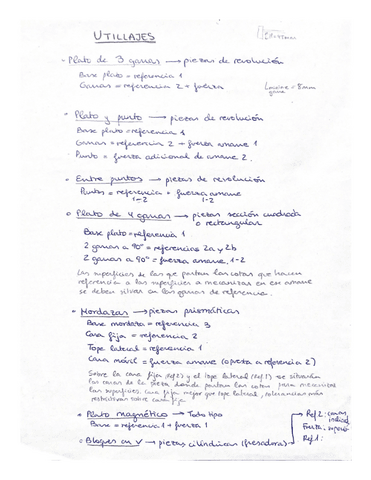 UTILLAJES
- Plato de 3 garras → piezas de revolución
Base plato = referencia 1
Garras = referencia 2 + fuerza
= 8mm
Plato y punto → piezas de revolución
Base plato = referencia 1
Garras = referencia 2 + fuerza amarre 1
Punto = fuerza adicional de amarre 2.
Entre puntos → piezas de revolución
Puntos = referencia = fuerza amarre
1-2 1-2
Plato de 4 garras → piezas sección cuadrada
o rectangular
Base plato = referencia 1
2 garras a 90° = referencias 2a y 2b
2 garras a 90° = fuerza amarre 1-2
Las superficies de las que partan las cotas que hacen
referencia a las superficies a mecanizar en ese amarre
se deben situar en las garras de referencia.
Mordazas → piezas prismáticas
Base mordaza = referencia 3
Cara fija = referencia 2
Tope lateral = referencia 1
Cara móvil = fuerza amarre (opuesta a referencia 2)
Sobre la cara fija (ref 2) y el tope lateral (ref 1) se situarán
las caras de la pieza donde partan las cotas para mecanizar
las superficies. Cara fija mejor que tope lateral, tolerancias más
restrictivas sobre cara fija
Plato magnético → Todo tipo
Base = referencia 1 + fuerza 1
Bloques en V → piezas cilíndricas (fresadora)
Ref 2: caras
Fuerza:
Ref 1: